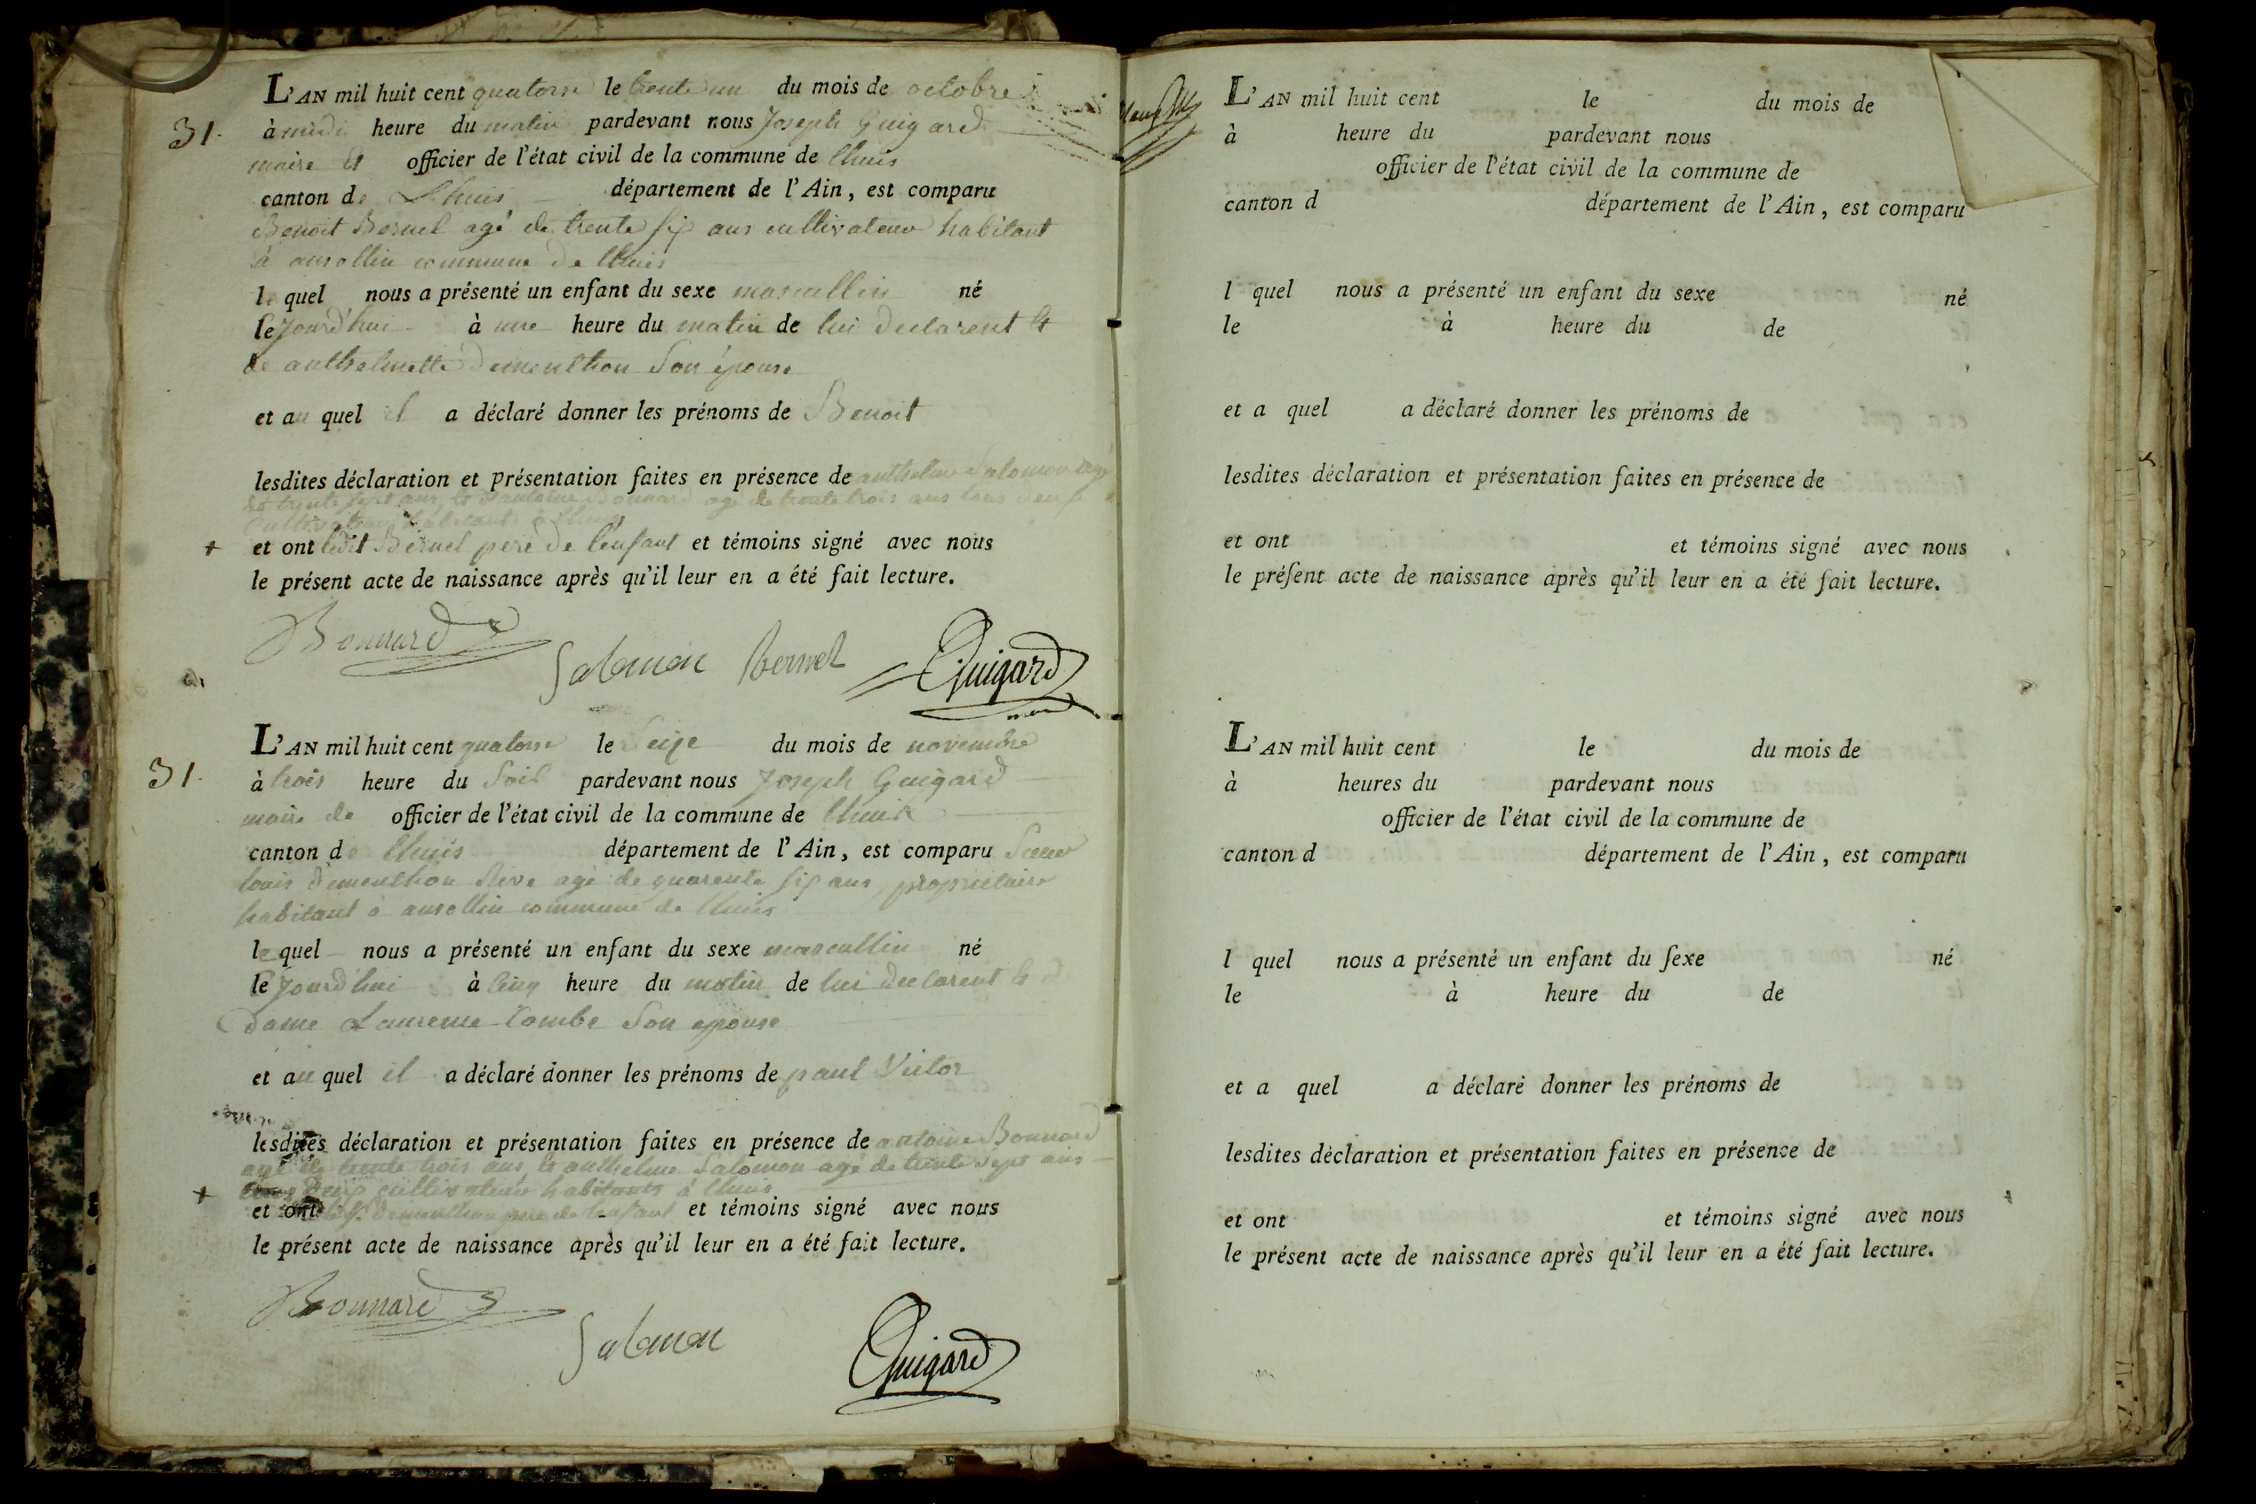 L'AN mil huit cent quatorse le trente un du mois de octobre
31. à midi heure du matin pardevant nous Joseph Guigard
maire et officier de l'état civil de la commune de lhuis
canton de Lhuis département de l'Ain, est comparu
Benoit Bernel agé de trente six ans cultivateur habitant
à ansollin commune de lhuis
le quel nous a présenté un enfant du sexe mascullin né
le jourd'hui à une heure du matin de lui declarent et
de anthelmette dementhon son épouse
et au quel il a déclaré donner les prénoms de Benoit
lesdites déclaration et présentation faites en présence de anthelme Salomon agé
de trente sept ans et antoine Bonnard agé de trente trois ans tous deux
cultivateur habitants à lhuis
+ et ont ledit Bernel pere de l'enfant et témoins signé avec nous
le présent acte de naissance après qu'il leur en a été fait lecture.
Bonnard Salomon Bernel Guigard
L'AN mil huit cent quatorse le seize du mois de novembre
31. à trois heure du soir pardevant nous Joseph Guigard
maire de officier de l'état civil de la commune de lhuis
canton de lhuis département de l'Ain, est comparu
louis dementhon agé de quarente six ans, proprietaire
habitant à ansollin commune de lhuis
le quel nous a présenté un enfant du sexe mascullin né
le jourd'hui à cinq heure du matin de lui declarent et d
dame Laurence Combe son epouse
et au quel il a déclaré donner les prénoms de paul Victor
lesdites déclaration et présentation faites en présence de antoine Bonnard
agé de trente trois ans, et anthelme Salomon agé de trente sept ans
+ tous deux cultivateur habitants à lhuis
et ont dementhon pere de l'enfant et témoins signé avec nous
le présent acte de naissance après qu'il leur en a été fait lecture.
Bonnard Salomon Guigard
L'AN mil huit cent le du mois de
à heure du pardevant nous
officier de l'état civil de la commune de
canton d département de l'Ain, est comparu
l quel nous a présenté un enfant du sexe né
le à heure du de
et a quel a déclaré donner les prénoms de
lesdites déclaration et présentation faites en présence de
et ont et témoins signé avec nous
le préſent acte de naissance après qu'il leur en a été fait lecture.
L'AN mil huit cent le du mois de
à heures du pardevant nous
officier de l'état civil de la commune de
canton d département de l'Ain, est comparu
l quel nous a présenté un enfant du ſexe né
le à heure du de
et a quel a déclaré donner les prénoms de
lesdites déclaration et présentation faites en présence de
et ont et témoins signé avec nous
le présent acte de naissance après qu'il leur en a été fait lecture.